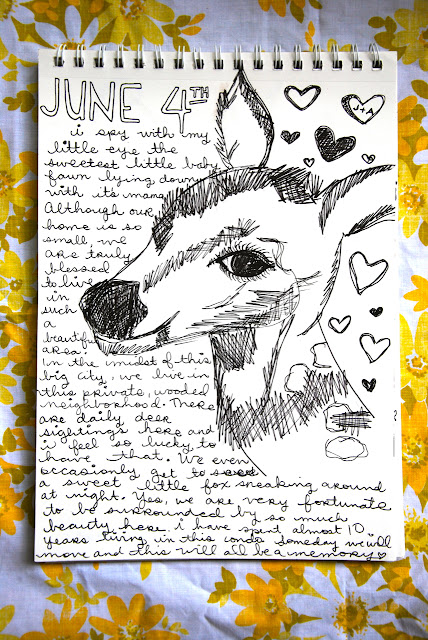 JUNE 4TH
i spy with my
little eye the
sweetest little baby
fawn lying down
with it's mama.
Although our
home is so
small, we
are truly
blessed
to live
in
such
a
beautiful
area.
In the midst of this
big city, we live in
this private, wooded
neighborhood. There
are daily deer
sightings here and
i feel so lucky to
have that. We even
occasionly get to
a sweet little fox sneaking around
at night. Yes, we are very fortunate
to be surrounded by so much
beauty here. i have spent almost 10
years living in this condo. Someday we will
move and this will all be a memory ♡